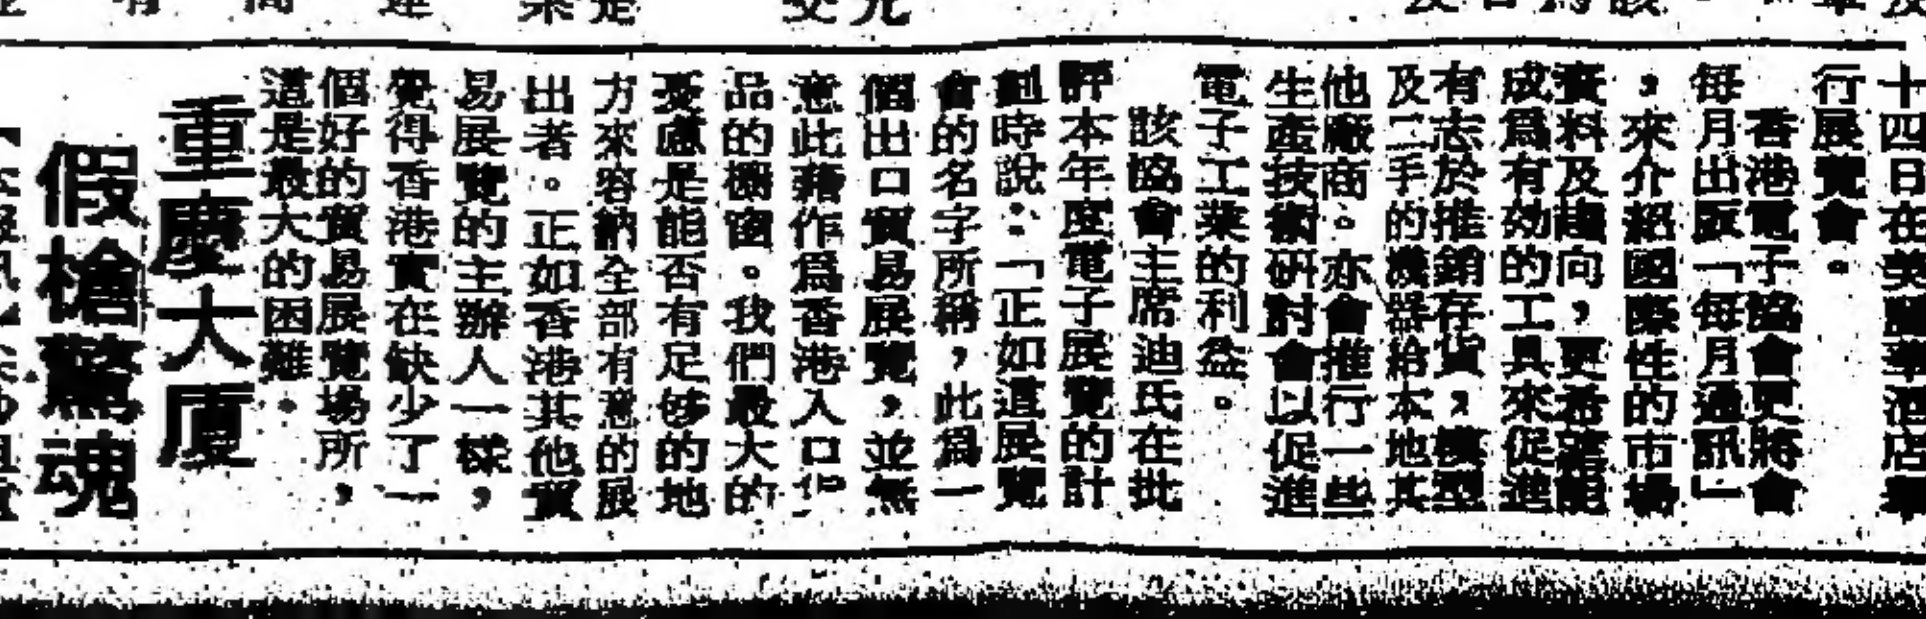 十四日在美麗華酒店舉
行展覽會。
香港電子協會更將會
每月出版「每月通訊」
，來介紹國際性的市場
資料及趨向，更希望能
成爲有効的工具來促進
有志於推銷存貨，模型
及二手的機器給本地其
他廠商。亦會推行一些
生產技術研討會以促進
電子工業的利益。
該協會主席迪氏在批
評本年度電子展覽的計
劃時說：「正如這展覽
會的名字所稱，此爲一
個出口貿易展覽，並無
意此藉作爲香港入口
品的櫥窗。我們最大的
憂慮是能否有足够的地
方來容納全部有意的展
出者。正如香港其他貿
易展覽的主辦人一樣，
覺得香港實在缺少了一
個好的貿易展覽場所，
這是最大的困難。
重慶大廈
假槍驚魂